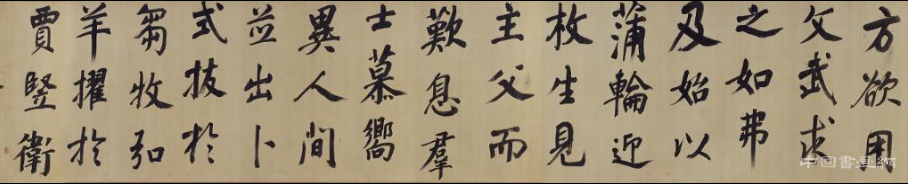 方欲用
文武求
之如弗
及始以
蒲輪迎
枚生見
主父而
歎息羣
士慕嚮
異人間
並出卜
式拔於
芻牧弘
羊擢於
賈豎衛
中国書畫網